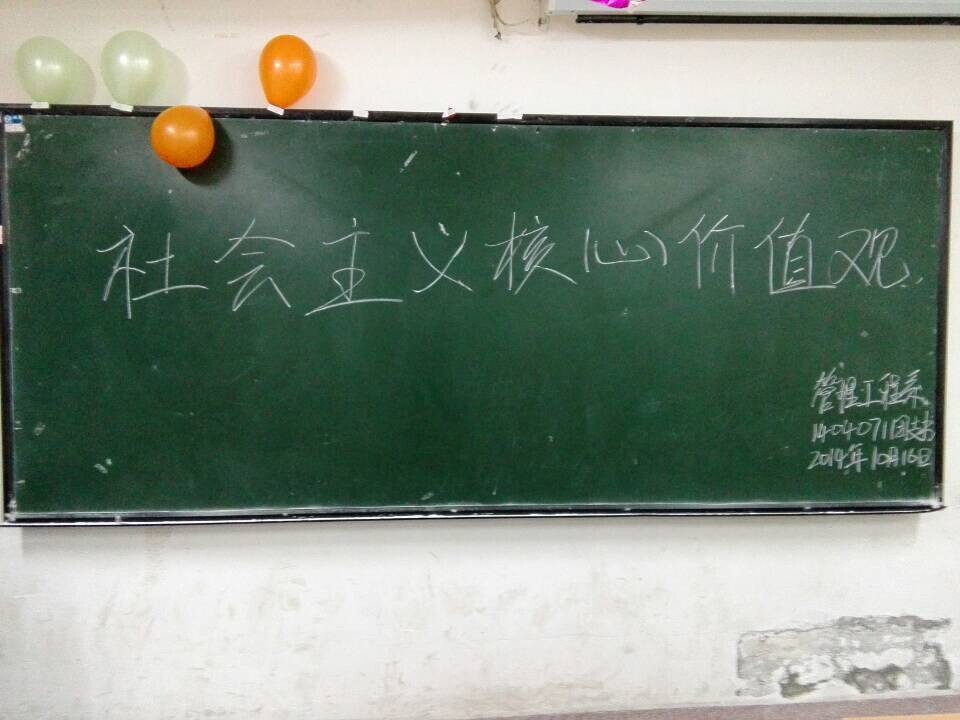 社会主义核心价值观
管理工程系
1404071团支部
2014年10月16日